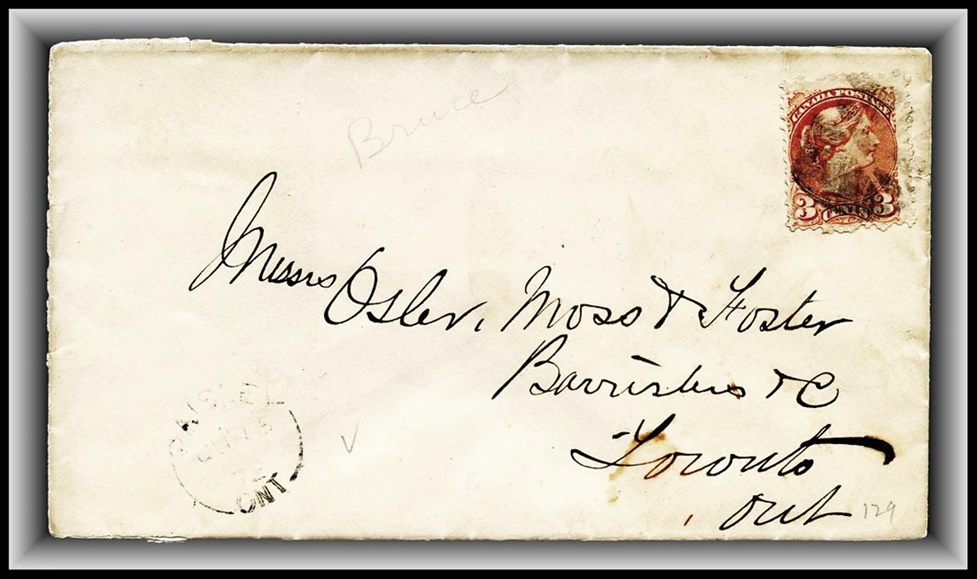 Bruce
CANADA POSTAGE
3 CENTS 3
Messrs Osler, Moss & Foster
Barristers & C
Toronto
Ont
129
PAISLEY
ONT